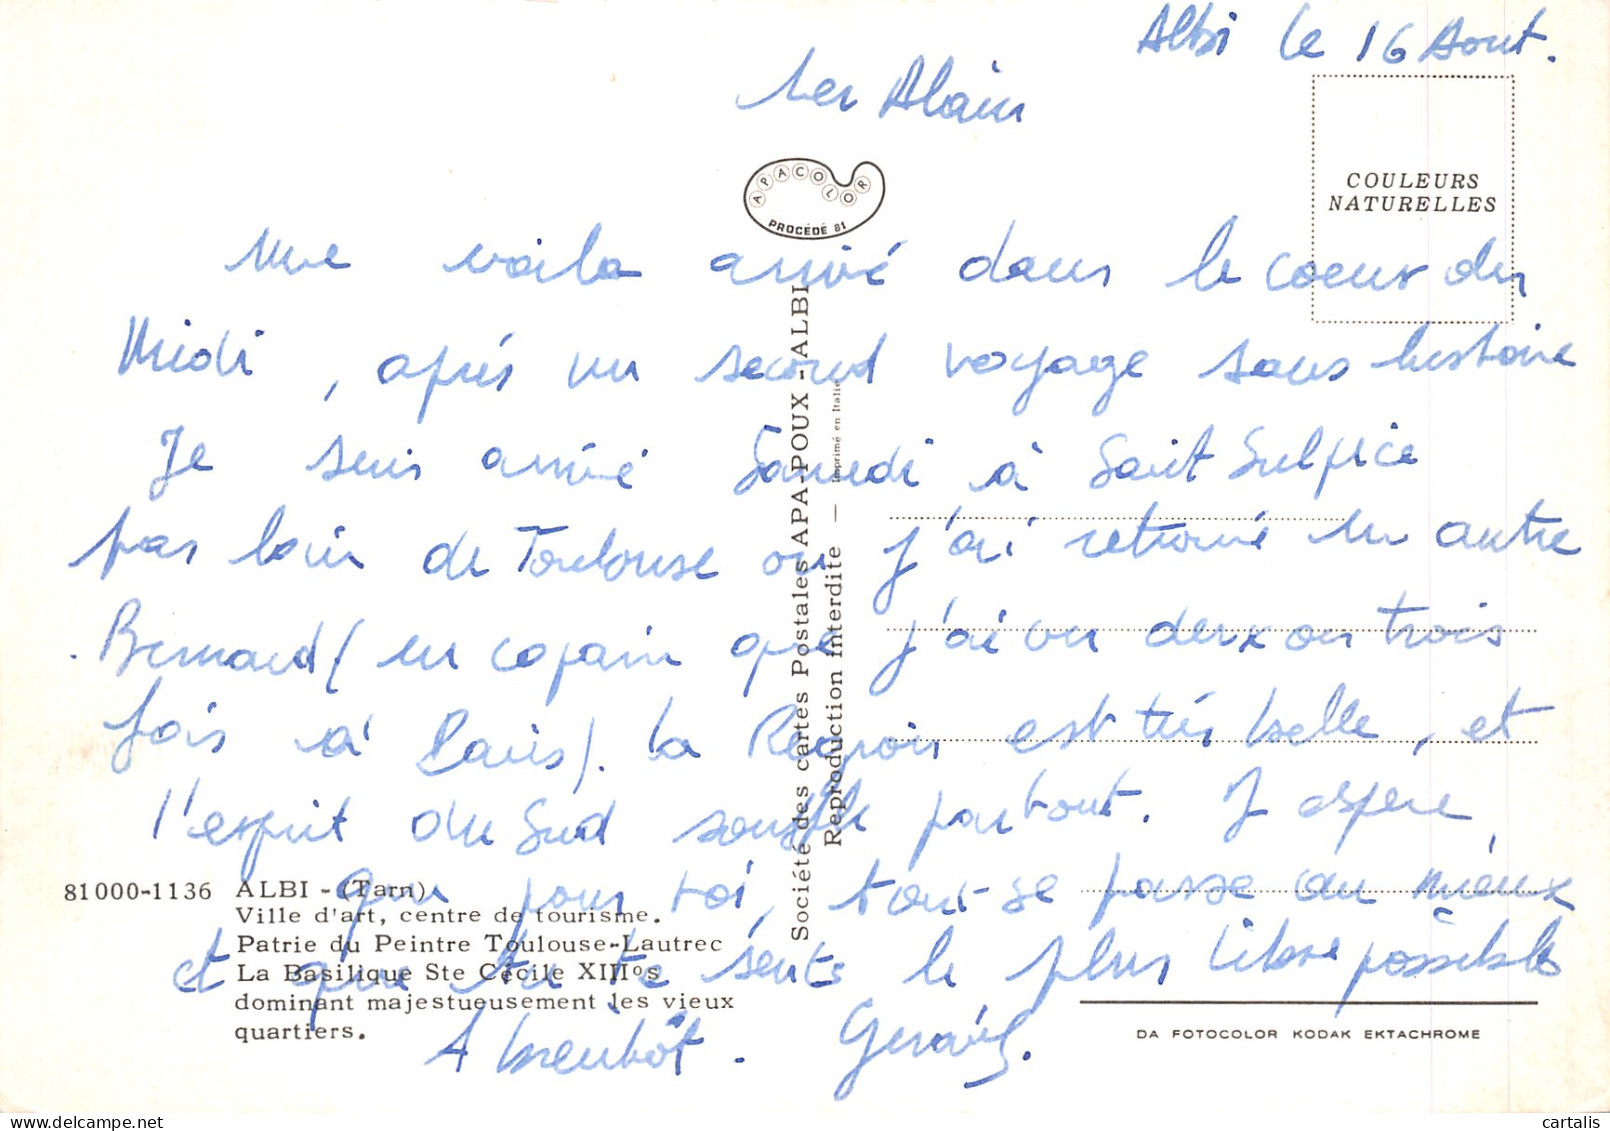 Albi le 16 Aout.
Alain
APACOLOR
PROCÉDÉ 81
COULEURS
NATURELLES
Me voila arrivé dans le coeur du
Midi, après un second voyage sans histoire
Je suis arrivé Samedi à Saint Sulpice
pas loin de Toulouse ou j'ai retrouvé un autre
Bernard (un copain que j'ai vu deux ou trois
fois à Paris). La Région est très belle, et
l'esprit du Sud souffle partout. J'espère,
que pour toi, tout se passe au mieux
et que tu te sents le plus libre possible
A bientôt. Gervais.
Société des cartes Postales APA-POUX - ALBI
Reproduction interdite — Imprimé en Italie
81000-1136 ALBI - (Tarn)
Ville d'art, centre de tourisme.
Patrie du Peintre Toulouse-Lautrec
La Basilique Ste Cécile XIIIos
dominant majestueusement les vieux
quartiers.
DA FOTOCOLOR KODAK EKTACHROME
cartalis